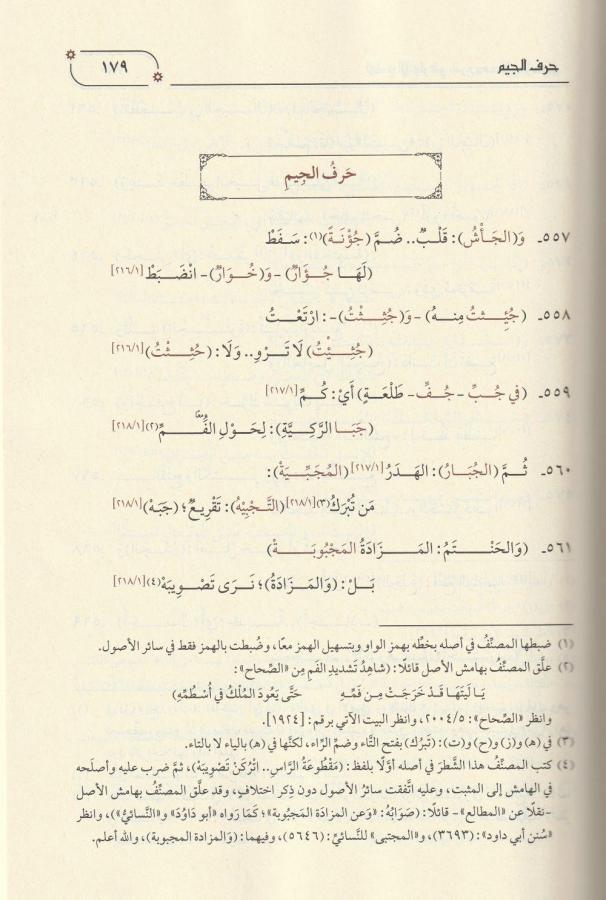 حرف الجيم
١٧٩
حَرفُ الجِيمِ
٥٥٧- وَ(الجَأْشُ): قَلْبٌ.. ضُمَّ (جُؤْنَةً)(١): سَفَطْ
(لَهَا جُؤَارٌ) - وَ(خُوَارٌ)- انْضَبَطْ [٢١٦/١]
٥٥٨- (جُئِثْتُ مِنهُ) - وَ(جُثِثْتُ)-: ارْتَعْتُ
(جُثِيْتُ) لَا تَرْوِ.. وَلَا: (حُثِثْتُ) [٢١٦/١]
٥٥٩- (في جُبِّ - جُفِّ - طَلْعَةٍ) أَيْ: كُمِّ [٢١٧/١]
(جَبَا الرَّكِيَّةِ): لِحَوْلِ الفُمِّ (٢)[٢١٨/١]
٥٦٠- ثُمَّ (الجُبَارُ): الهَدَرُ [٢١٧/١] (المُجَبِّيَةْ):
مَن تُبْرَكُ (٣)[٢١٨/١] (التَّجْبِيْهُ): تَقْرِيعٌ؛ (جَبَهْ) [٢١٨/١]
٥٦١- (وَالحَنْتَمُ: المَزَادَةُ المَجْبُوبَةْ)
بَلْ: (وَالمَزَادَةُ)؛ نَرَى تَصْوِيبَهْ (٤)[٢١٨/١]
(١) ضبطها المصنِّفُ في أصله بخطِّه بهمز الواو وبتسهيل الهمز معًا، وضُبطت بالهمز فقط في سائر الأصول.
(٢) علَّق المصنِّف بهامش الأصل قائلًا: (شاهِدُ تَشديدِ الفَمِ مِن «الصِّحاح»:
يَا لَيتَهَا قَدْ خَرَجَتْ مِن فُمِّهِ حَتَّى يَعُودَ المُلْكُ في أُسْطُمِّهِ)
وانظر «الصِّحاح»: ٢٠٠٤/٥، وانظر البيت الآتي برقم: [١٩٢٤].
(٣) في (هـ) و(ز) و(ح) و(ت): (تَبرُك) بفتح التَّاء وضمِّ الرَّاء، لكنَّها في (هـ) بالياء لا بالتاء.
(٤) كتب المصنِّف هذا الشَّطرَ في أصله أوَّلًا بلفظ: (مَقْطُوعَةُ الرَّاسِ.. اتْرُكَنْ تَصْوِيبَهْ)، ثمَّ ضرب عليه وأصلَحه
في الهامش إلى المثبت، وعليه اتَّفقت سائرُ الأصول دون ذِكر اختلافٍ، وقد علَّق المصنِّف بهامش الأصل
-نقلًا عن «المطالع»- قائلًا: (صَوَابُهُ: «وَعن المزادة المَجبُوبة»؛ كمَا رَواه «أبو دَاوُدَ» و«النَّسائيُّ»)، وانظر
«سُنن أبي داود»: (٣٦٩٣)، و«المجتبى» للنَّسائيِّ: (٥٦٤٦)، وفيهما: (وَالمزادة المجبوبة)، والله أعلم.